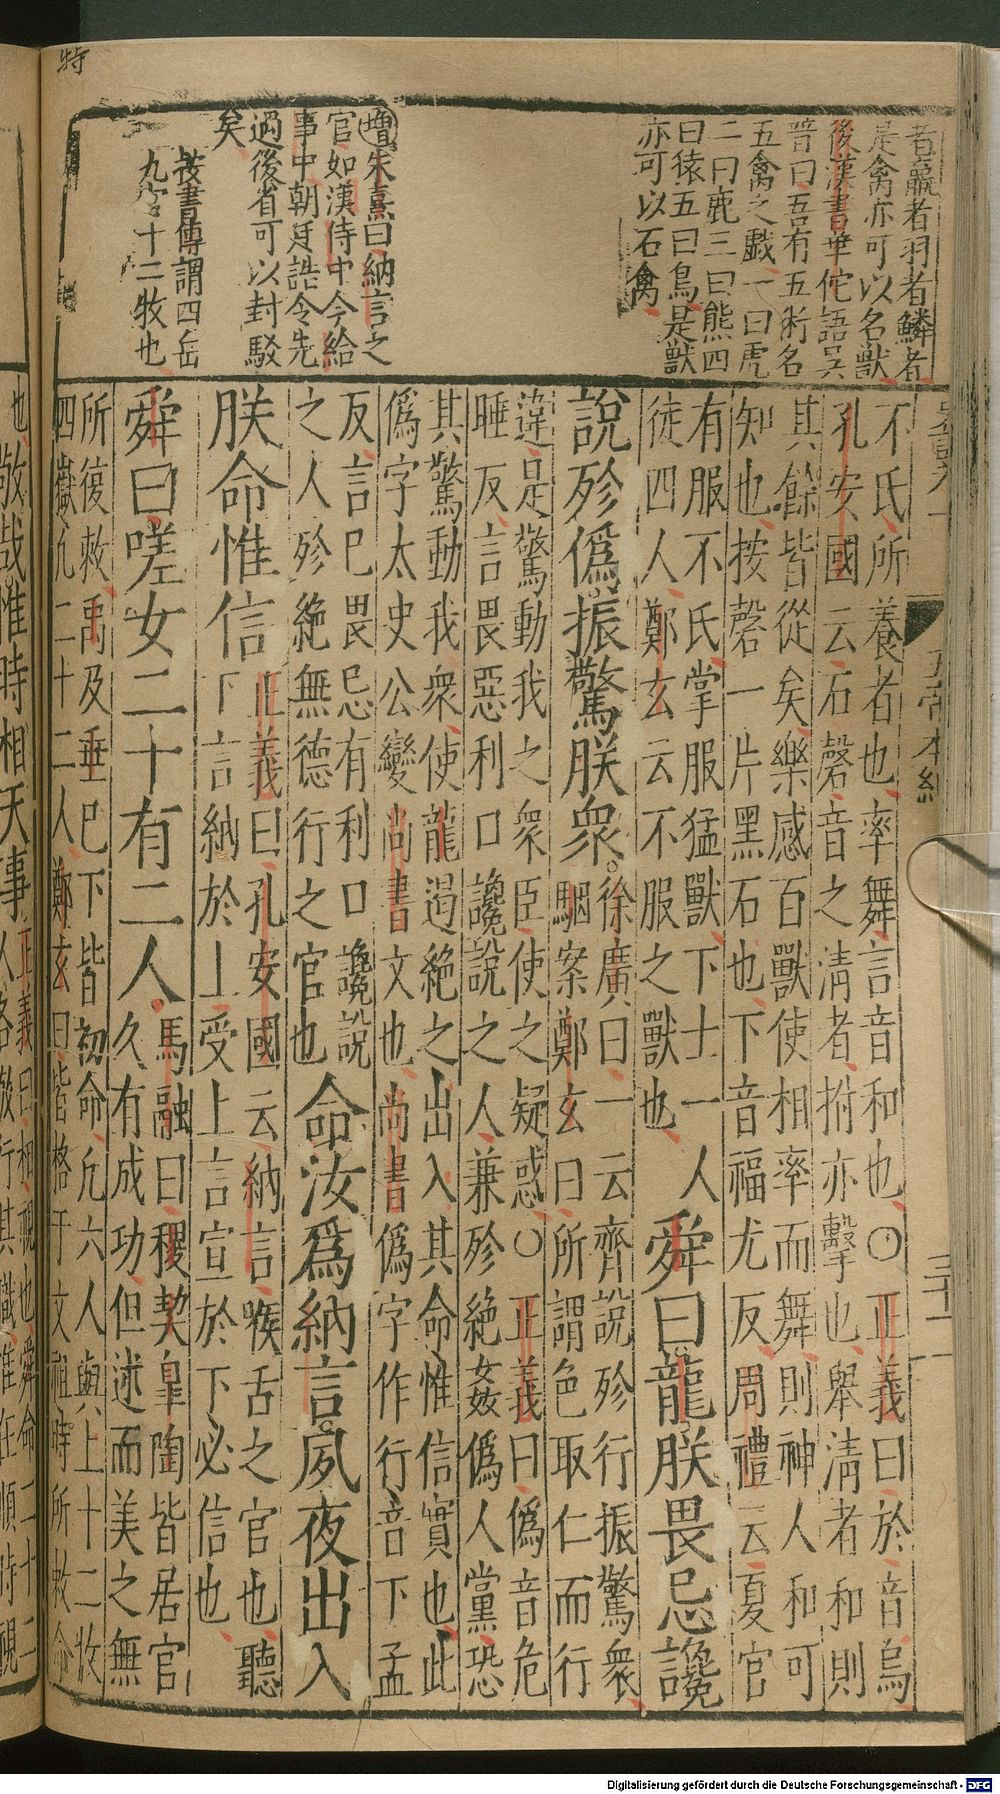 特
者蠃者羽者鱗者
是禽亦可以名獸
後漢書華佗語吳
普曰吾有五術名
五禽之戲一曰虎
二曰鹿三曰熊四
曰猿五曰鳥是獸
亦可以名禽
增朱熹曰納言之
官如漢侍中今給
事中朝廷誥令先
過後省可以封駁
矣
按書傳謂四岳
九官十二牧也
五帝本紀
三十一
不氏所養者也率舞言音和也〇正義曰於音烏
孔安國云石磬音之清者拊亦擊也舉清者和則
其餘皆從矣樂感百獸使相率而舞則神人和可
知也按磬一片黑石也下音福尤反周禮云夏官
有服不氏掌服猛獸下士一人
徒四人鄭玄云不服之獸也
舜曰龍朕畏忌讒
說殄僞振驚朕衆
徐廣曰一云齊說殄行振驚衆
駰案鄭玄曰所謂色取仁而行
違是驚動我之衆臣使之疑惑〇正義曰僞音危
睡反言畏惡利口讒說之人兼殄絶姦僞人黨恐
其驚動我衆使龍遏絶之出入其命惟信實也此
僞字太史公變尚書文也尚書僞字作行音下孟
反言己畏忌有利口讒說
之人殄絶無德行之官也
命汝爲納言夙夜出入
朕命惟信
正義曰孔安國云納言喉舌之官也聽
下言納於上受上言宣於下必信也
舜曰嗟女二十有二人
馬融曰稷契皐陶皆居官
久有成功但述而美之無
所復敕禹及垂已下皆初命凡六人與上十二牧
四嶽凡二十二人鄭玄曰皆格于文祖時所敕命
也敬哉惟時相天事
正義曰相視也舜命二十二
人各敬行其職惟在順時視